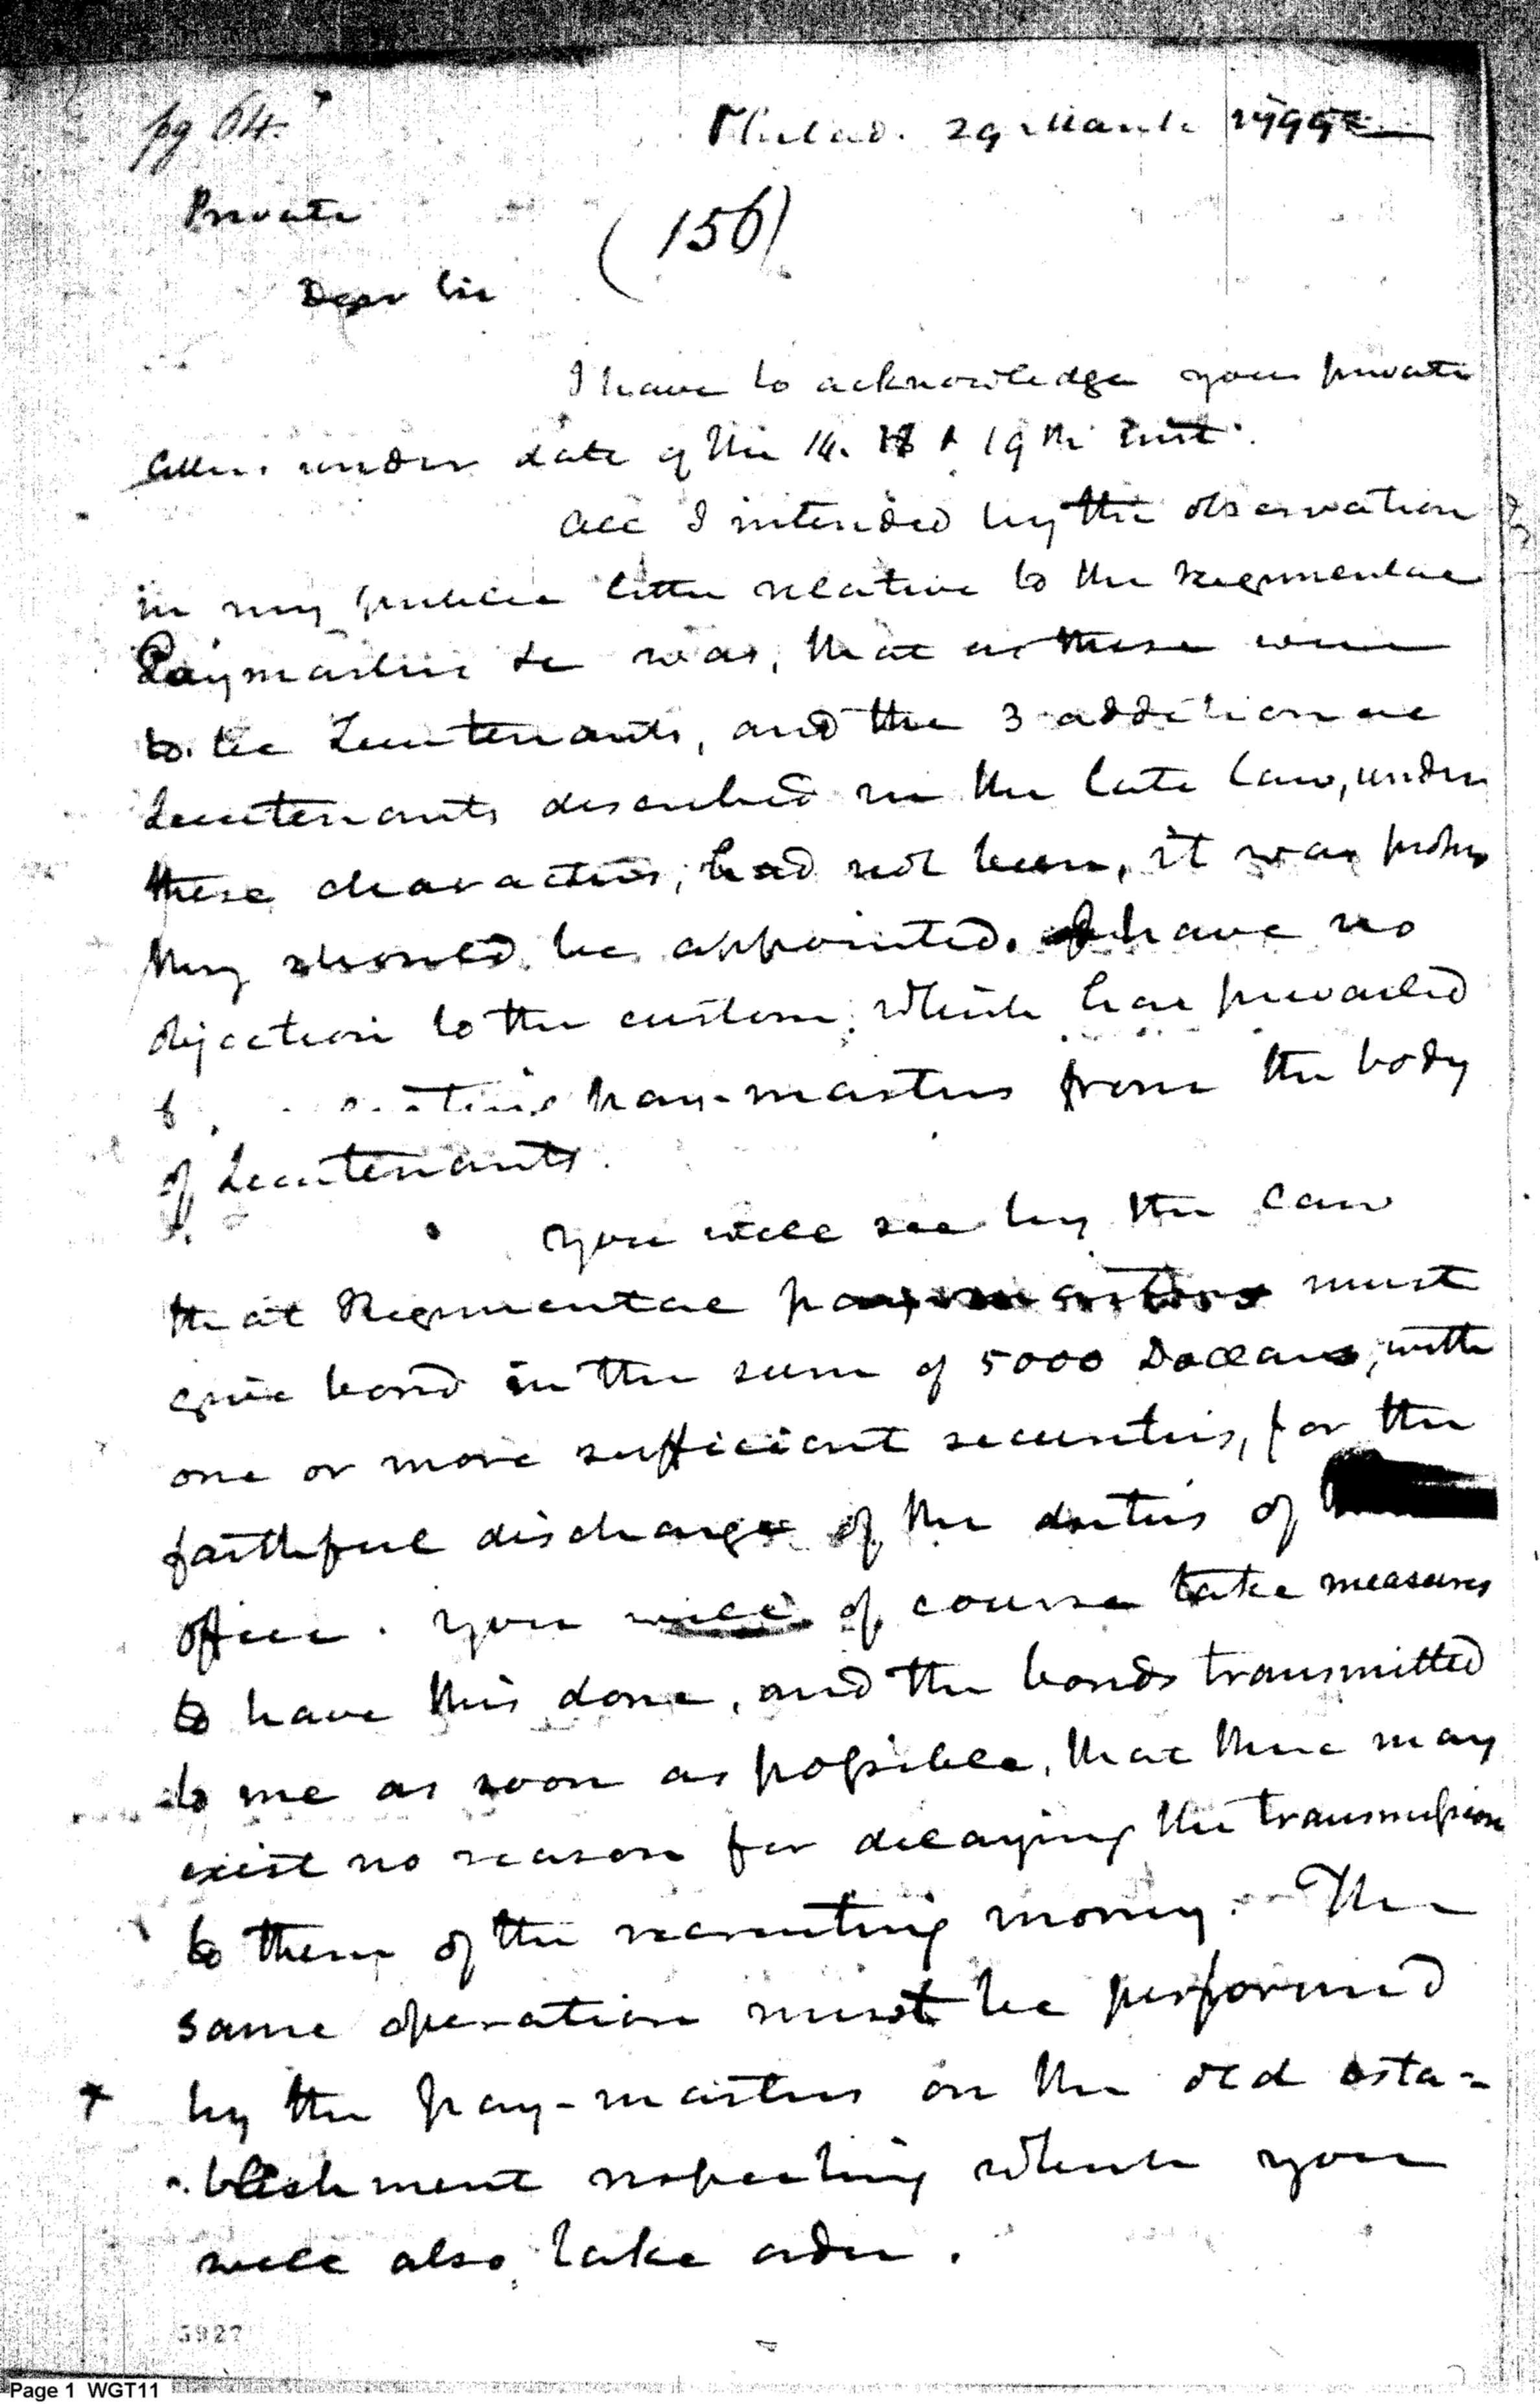 pg 64.
Philad. 29 March 1799
Private
(156)
Dear Sir
I have to acknowledge your private
letters under date of the 14. 18 & 19th inst.
all I intended by the observation
in my public letter relative to the Regimental
Paymasters &c was, that as these were
to be Lieutenants, and the 3 additional
Lieutenants described in the late law, under
these characters, had not been, it was proper
they should be appointed. I have no
objection to the custom, which has prevailed
pay-masters from the body
of Lieutenants.
you will see by the law
that Regimental paymasters must
give bond in the sum of 5000 Dollars, with
one or more sufficient securities, for the
faithful discharge of the duties of
office. you will of course take measures
to have this done, and the bonds transmitted
to me as soon as possible, that there may
exist no reason for delaying the transmission
to them of the recruiting money. The
same operation must be performed
by the pay-masters on the old esta=
blishment respecting which you
will also take order.
5927
Page 1 WGT11